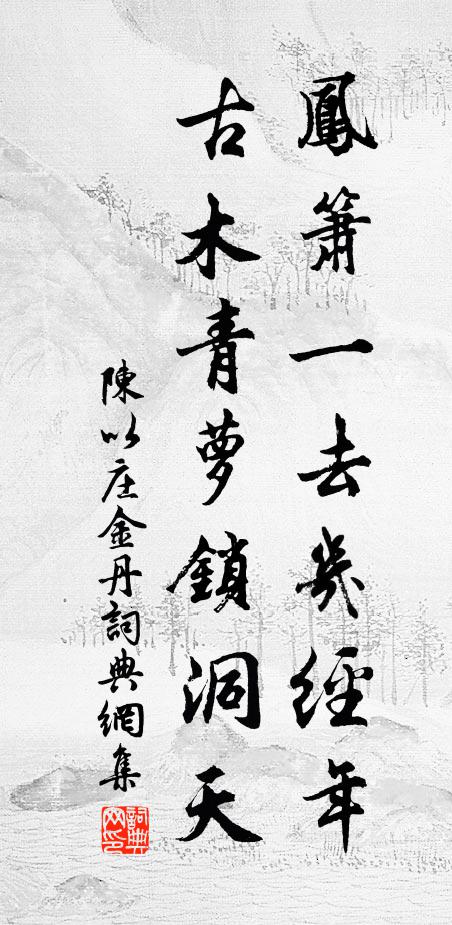 鳳簫一去幾經年
古木青萝鎖洞天
陳以庄金丹詞典網集
詞典
网印